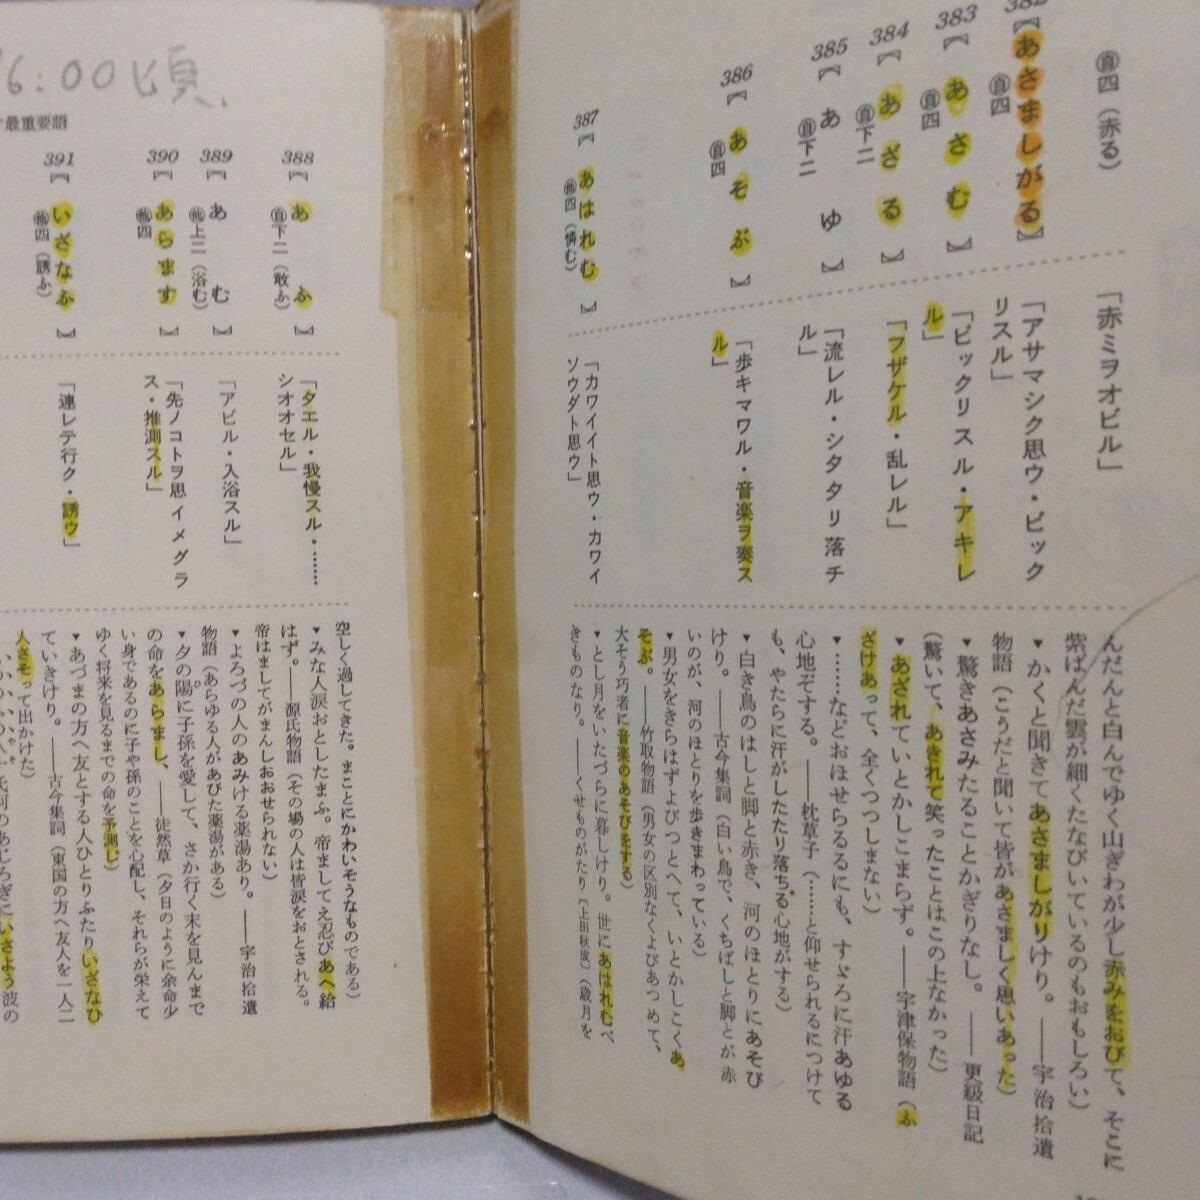 ㊐四（赤る）
「赤ミヲオビル」
んだんと白んでゆく山ぎわが少し赤みをおびて、そこに
紫ばんだ雲が細くたなびいているのもおもしろい）
382【あさましがる】
㊐四
「アサマシク思ウ・ビック
リスル」
▼かくと聞きてあさましがりけり。――宇治拾遺
物語（こうだと聞いて皆があさましく思いあった）
383【あさむ】
㊐四
「ビックリスル・アキレ
ル」
▼驚きあさみたることかぎりなし。――更級日記
（驚いて、あきれて笑ったことはこの上なかった）
384【あざる】
㊐下二
「フザケル・乱レル」
▼あざれていとかしこまらず。――宇津保物語（ふ
ざけあって、全くつつしまない）
385【あゆ】
㊐下二
「流レル・シタタリ落チ
ル」
▼……などおほせらるるにも、すゞろに汗あゆる
心地ぞする。――枕草子（……と仰せられるにつけて
も、やたらに汗がしたたり落ちる心地がする）
386【あそぶ】
㊐四
「歩キマワル・音楽ヲ奏ス
ル」
▼白き鳥のはしと脚と赤き、河のほとりにあそび
けり。――古今集詞（白い鳥で、くちばしと脚とが赤
いのが、河のほとりを歩きまわっている）
▼男女をきらはずよびつどへて、いとかしこくあ
そぶ。――竹取物語（男女の区別なくよびあつめて、
大そう巧者に音楽のあそびをする）
387【あはれむ】
㊀四（憐む）
「カワイイト思ウ・カワイ
ソウダト思ウ」
▼とし月をいたづらに暮しけり。世にあはれむべ
きものなり。――くせものがたり〔上田秋成〕（歳月を
6:00頃、
最重要語
空しく過してきた。まことにかわいそうなものである）
388【あふ】
㊐下二（敢ふ）
「タエル・我慢スル・……
シオオセル」
▼みな人涙おとしたまふ。帝ましてえ忍びあへ給
はず。――源氏物語（その場の人は皆涙をおとされる。
帝はましてがまんしおおせられない）
389【あむ】
㊀上二（浴む）
「アビル・入浴スル」
▼よろづの人のあみける薬湯あり。――宇治拾遺
物語（あらゆる人があびた薬湯がある）
390【あらます】
㊀四
「先ノコトヲ思イメグラ
ス・推測スル」
▼夕の陽に子孫を愛して、さか行く末を見んまで
の命をあらまし、――徒然草（夕日のように余命少
い身であるのに子や孫のことを心配し、それらが栄えて
ゆく将来を見るまでの命を予測し）
391【いざなふ】
㊀四（誘ふ）
「連レテ行ク・誘ウ」
▼あづまの方へ友とする人ひとりふたりいざなひ
ていきけり。――古今集詞（東国の方へ友人を一人二
人さそって出かけた）
氏河のあじろぎにいさよう波の